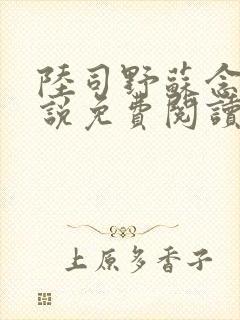 陸司野蘇念
說免費閱讀
上原多香子